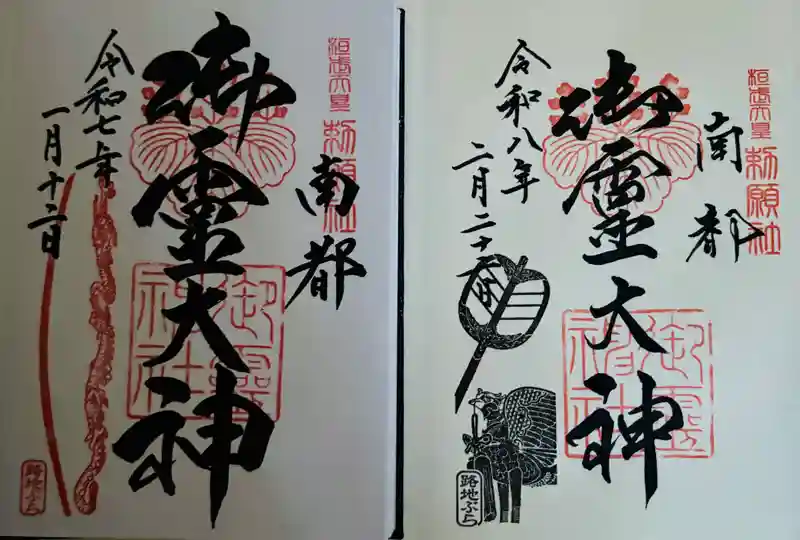 桓武天皇
勅願社
南都
御霊大神
御霊神社
令和七年
一月十二日
路地ぶら
桓武天皇
勅願社
南都
御霊大神
御霊神社
令和八年
路地ぶら